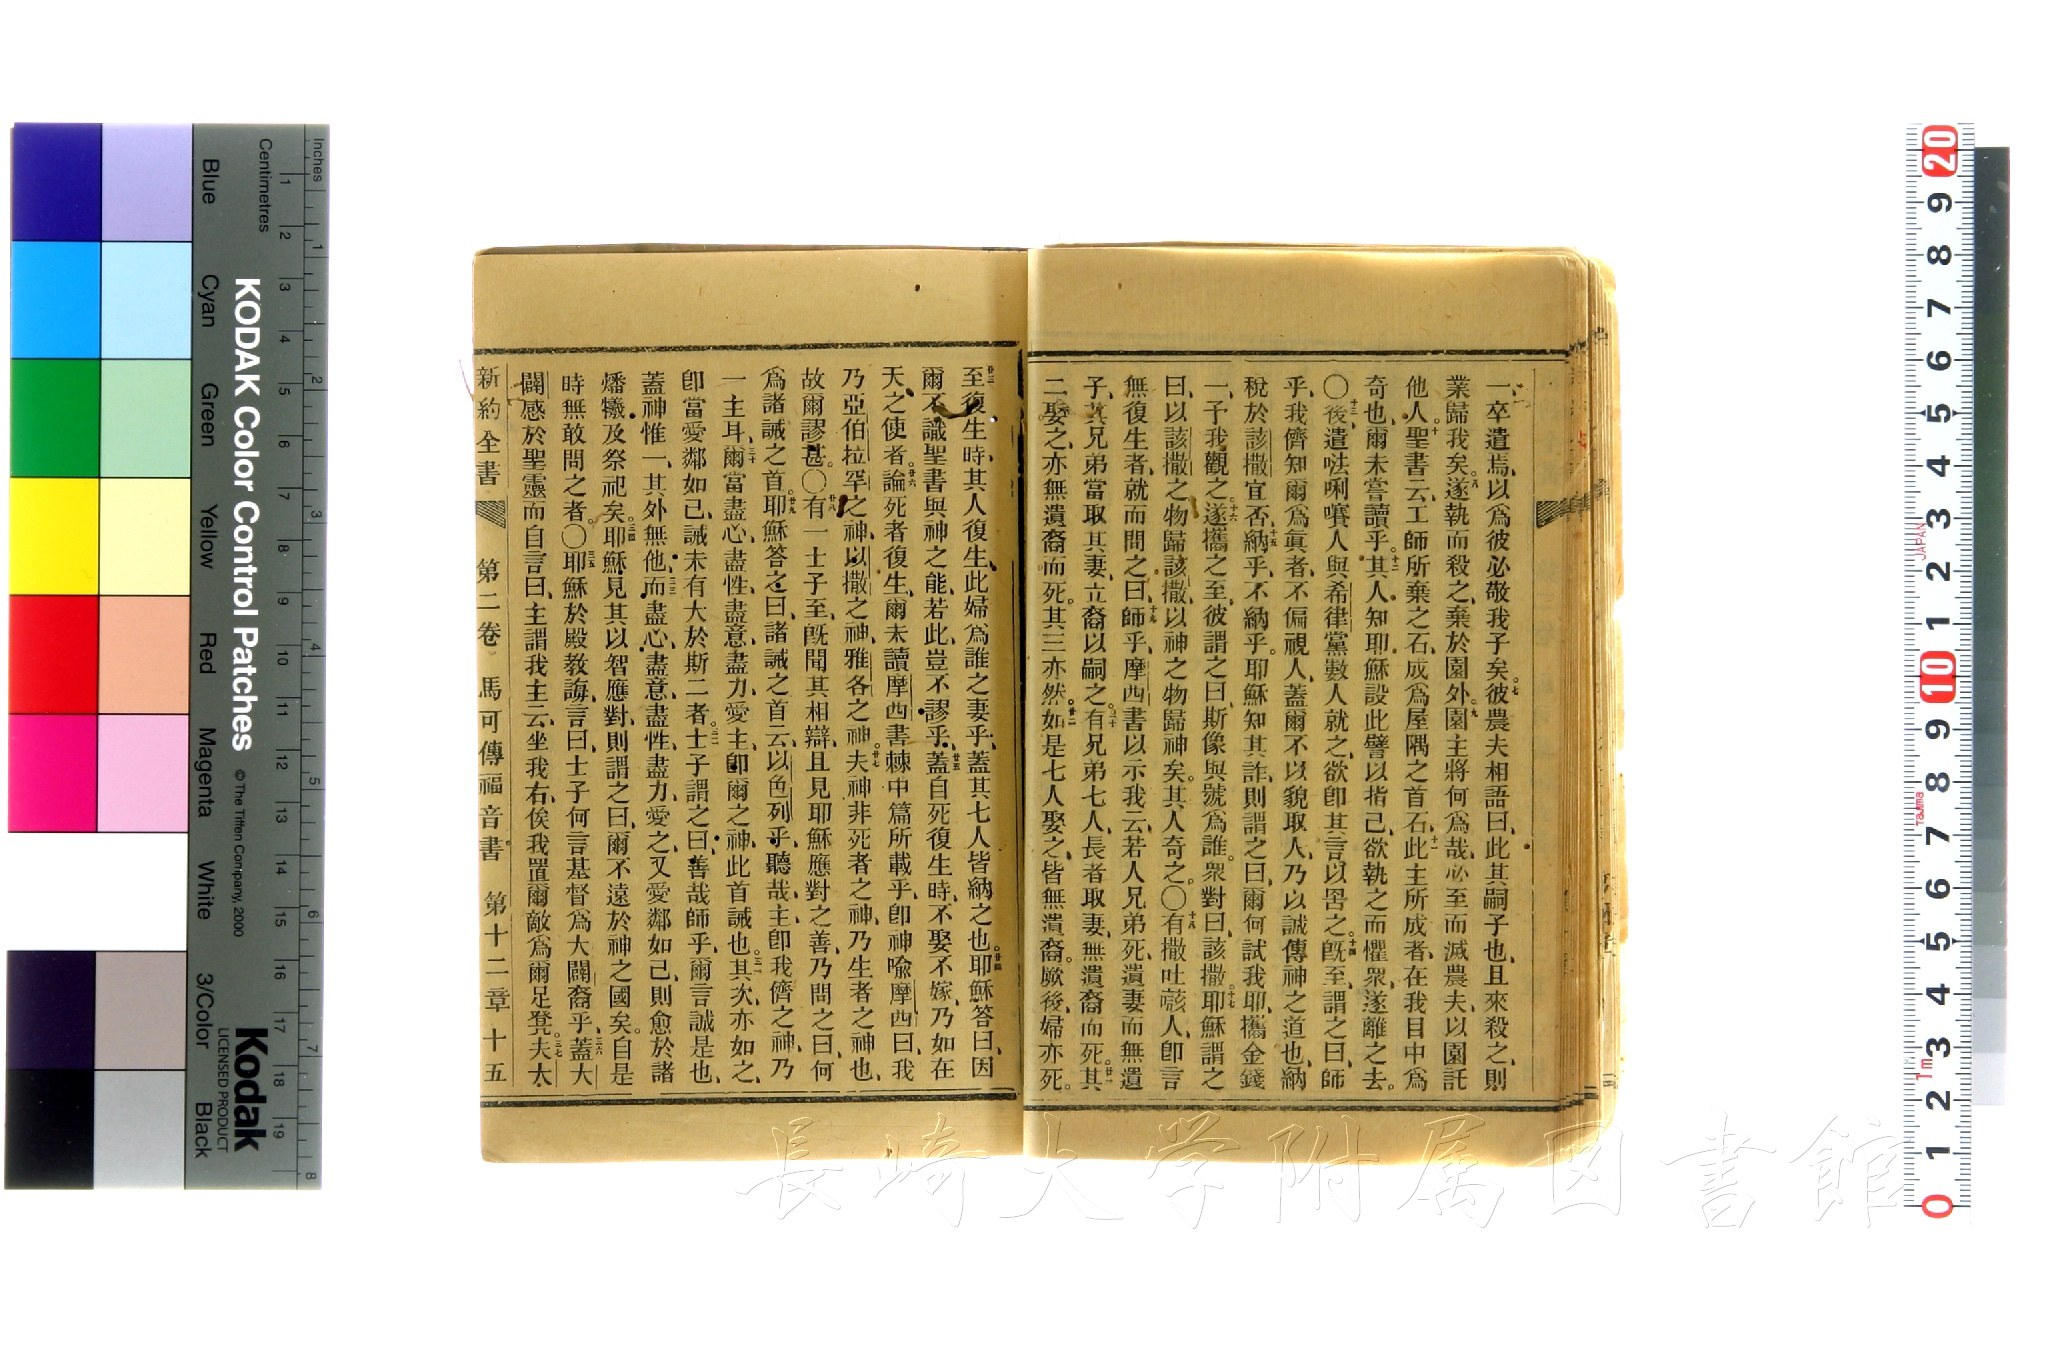 一卒遣焉、以爲彼必敬我子矣。七彼農夫相語曰、此其嗣子也、且來殺之、則
業歸我矣。八遂執而殺之、棄於園外。九園主將何爲哉、必至而滅農夫、以園託
他人。十聖書云、工師所棄之石、成爲屋隅之首石、十一此主所成者、在我目中爲
奇也、爾未嘗讀乎。十二其人知耶穌設此譬以指己、欲執之而懼衆、遂離之去。
〇十三後遣𠵽唎㘔人與希律黨數人就之、欲卽其言以罟之。十四旣至、謂之曰、師
乎、我儕知爾爲眞者、不偏視人、蓋爾不以貌取人、乃以誠傳神之道也、納
稅於該撒宜否、納乎、十五不納乎。耶穌知其詐、則謂之曰、爾何試我耶、攜金錢
一、予我觀之。十六遂攜之至、彼謂之曰、斯像與號爲誰。衆對曰、該撒。十七耶穌謂之
曰、以該撒之物歸該撒、以神之物歸神矣。其人奇之。〇十八有撒吐𡀲人、卽言
無復生者、就而問之曰、十九師乎、摩西書以示我云、若人兄弟死、遺妻而無遺
子、其兄弟當取其妻、立裔以嗣之。二十有兄弟七人、長者取妻、無遺裔而死。廿一其
二娶之、亦無遺裔而死。其三亦然。廿二如是七人娶之、皆無遺裔。厥後婦亦死。
廿三至復生時、其人復生、此婦爲誰之妻乎、蓋其七人皆納之也。廿四耶穌答曰、因
爾不識聖書與神之能、若此豈不謬乎、廿五蓋自死復生時、不娶不嫁、乃如在
天之使者。廿六論死者復生、爾未讀摩西書棘中篇所載乎、卽神喩摩西曰、我
乃亞伯拉罕之神、以撒之神、雅各之神。廿七夫神非死者之神、乃生者之神也、
故爾謬甚。〇廿八有一士子至、旣聞其相辯、且見耶穌應對之善、乃問之曰、何
爲諸誡之首。廿九耶穌答之曰、諸誡之首云、以色列乎、聽哉、主卽我儕之神、乃
一主耳、三十爾當盡心、盡性、盡意、盡力、愛主卽爾之神、此首誡也。三一其次亦如之、
卽當愛鄰如己、誡未有大於斯二者。三二士子謂之曰、善哉師乎、爾言誠是也、
蓋神惟一、其外無他、三三而盡心、盡意、盡性、盡力、愛之、又愛鄰如己、則愈於諸
燔犧及祭祀矣。三四耶穌見其以智應對、則謂之曰、爾不遠於神之國矣。自是
時無敢問之者。〇三五耶穌於殿敎誨、言曰、士子何言基督爲大闢裔乎、三六蓋大
闢感於聖靈而自言曰、主謂我主云、坐我右、俟我置爾敵爲爾足凳。三七夫大
新約全書 第二卷 馬可傳福音書 第十二章 十五
KODAK Color Control Patches
© The Tiffen Company, 2000
Kodak
LICENSED PRODUCT
Inches
Centimetres
Blue
Cyan
Green
Yellow
Red
Magenta
White
3/Color
Black
JAPAN
Tajima
1m
長崎大学附属図書館